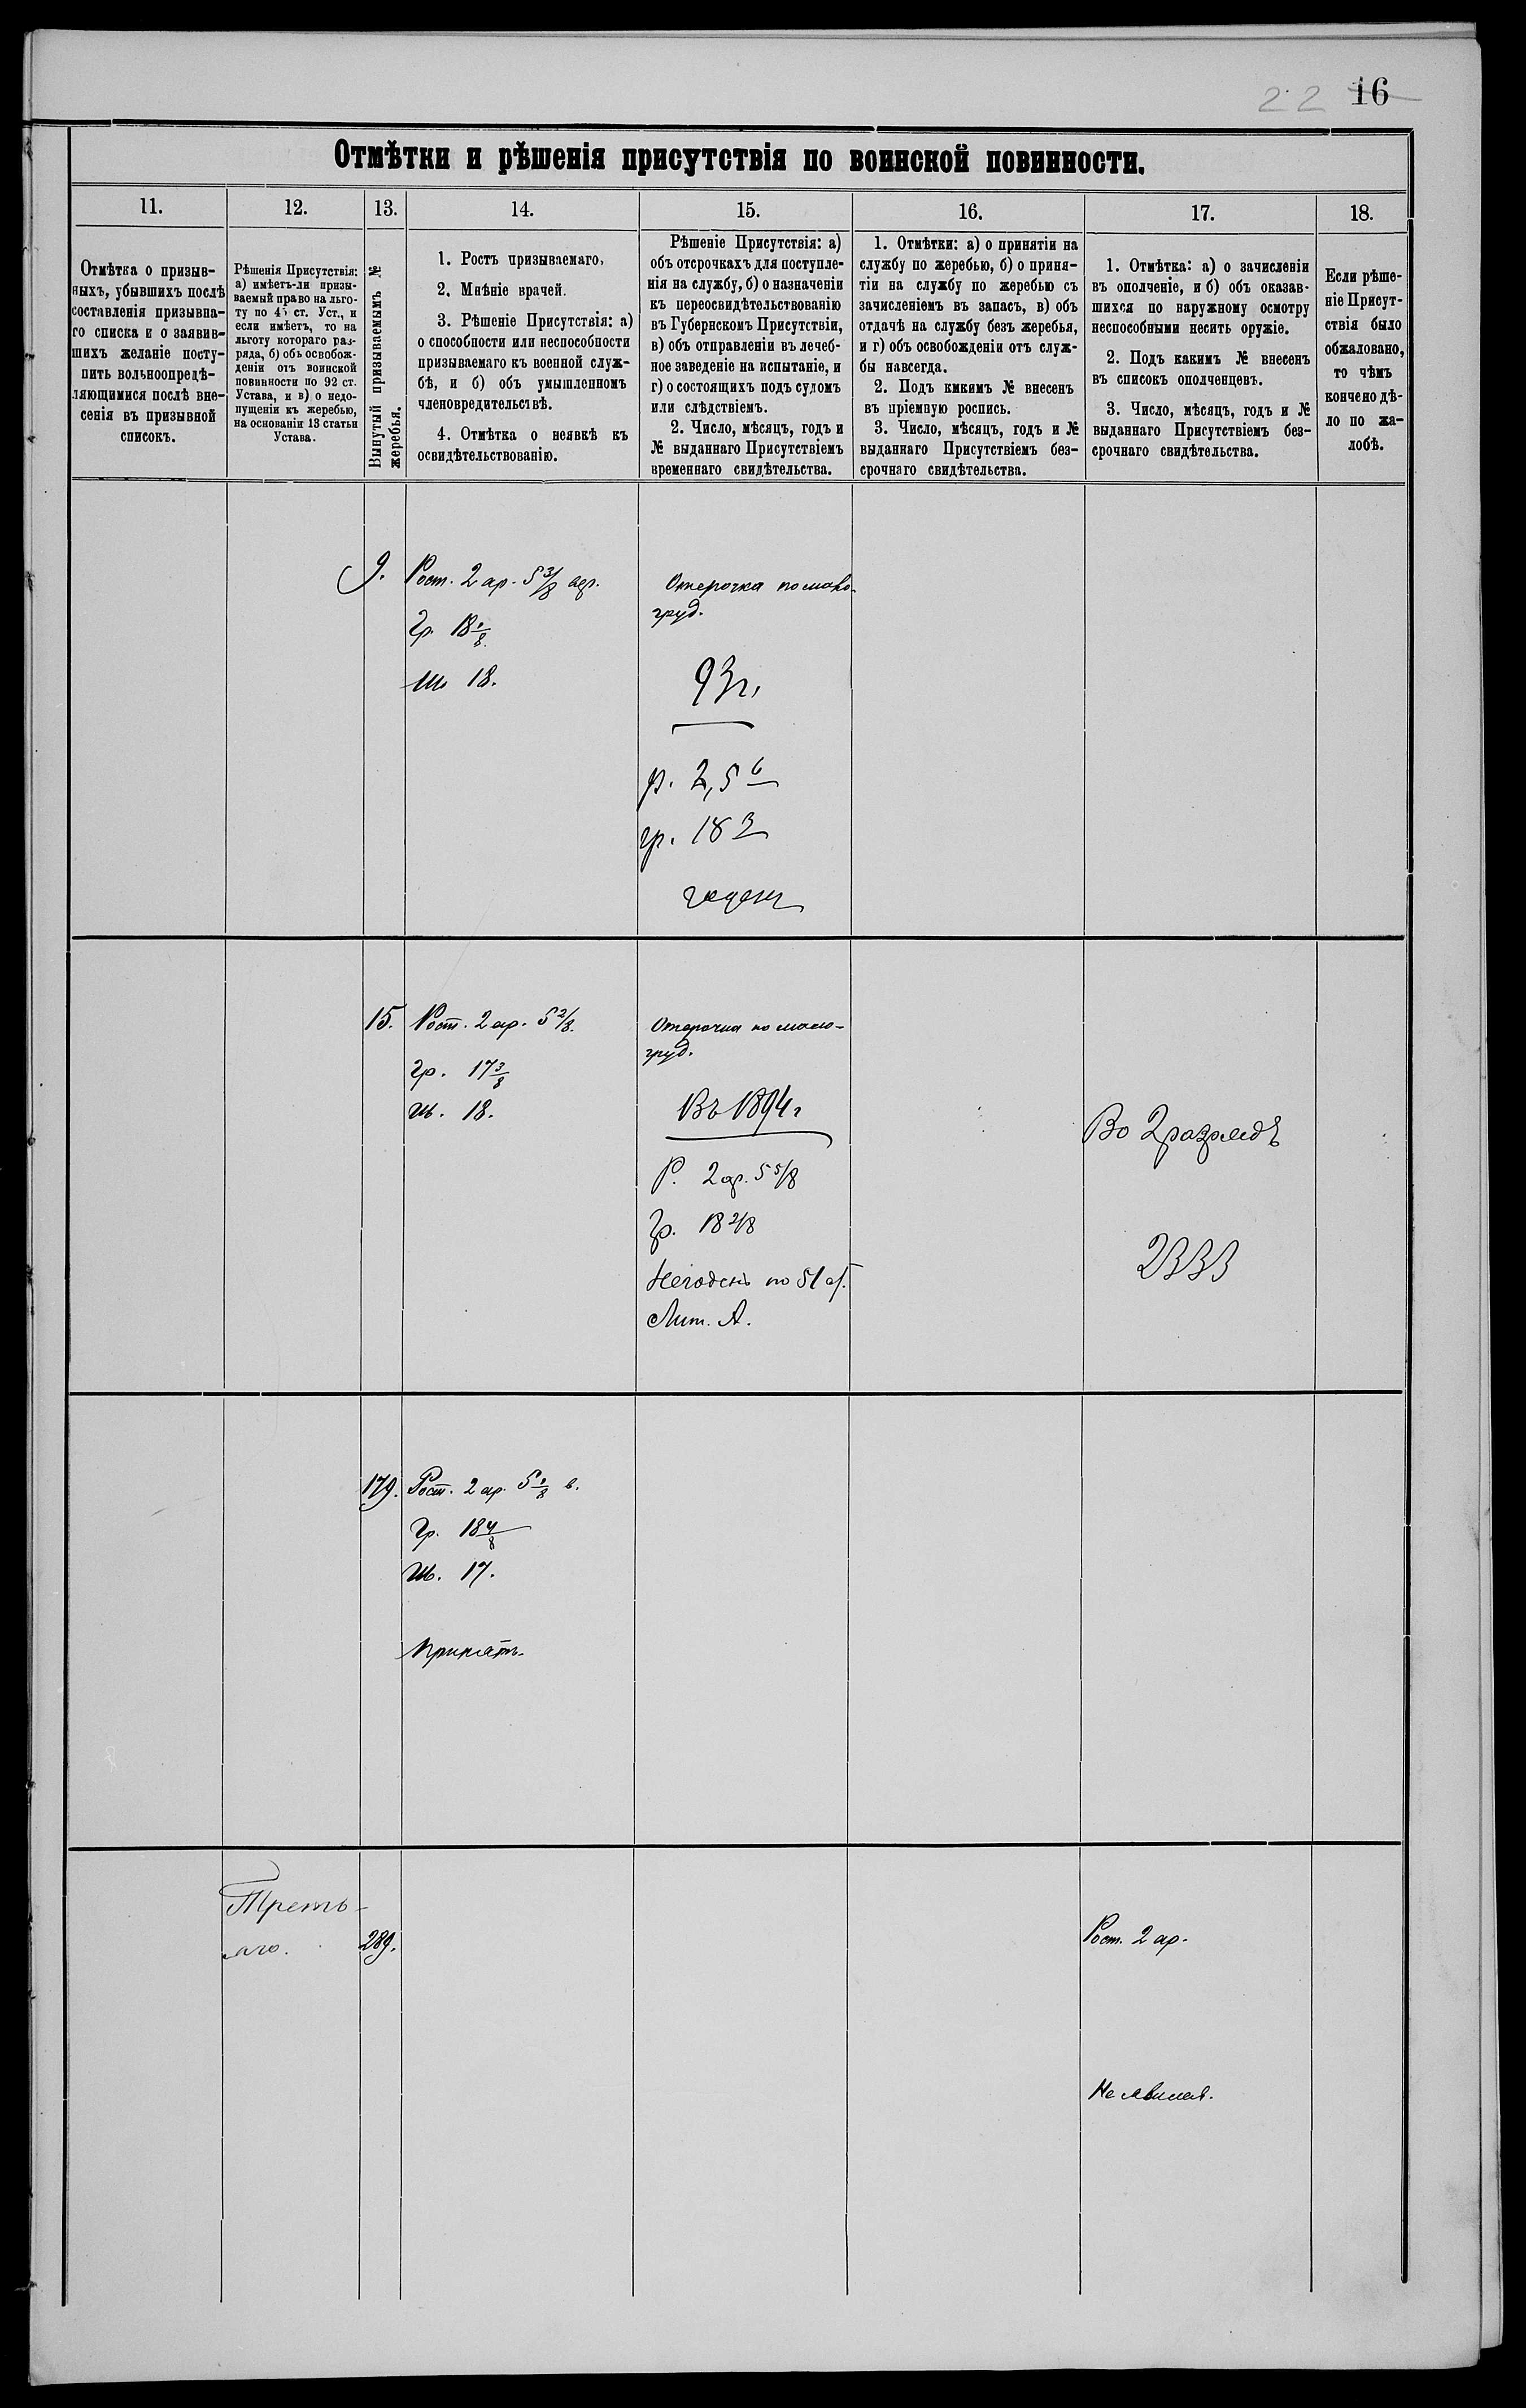 22 16
Отмѣтки и рѣшенія присутствія по воинской повинности.
11. 12. 13. 14. 15. 16. 17. 18.
Отмѣтка о призыв-
ныхъ, убывшихъ послѣ
составленія призывна-
го списка и о заявив-
шихъ желаніе посту-
пить вольноопредѣ-
ляющимися послѣ вне-
сенія въ призывной
списокъ.
Рѣшенія Присутствія:
а) имѣетъ-ли призы-
ваемый право на льго-
ту по 45 ст. Уст., и
если имѣетъ, то на
льготу котораго раз-
ряда, б) объ освобож-
деніи отъ воинской
повинности по 92 ст.
Устава, и в) о недо-
пущеніи къ жеребью,
на основаніи 13 статьи
Устава.
Вынутый призываемымъ №
жеребья.
1. Ростъ призываемаго,
2. Мнѣніе врачей.
3. Рѣшеніе Присутствія: а)
о способности или неспособности
призываемаго къ военной служ-
бѣ, и б) объ умышленномъ
членовредительствѣ.
4. Отмѣтка о неявкѣ къ
освидѣтельствованію.
Рѣшеніе Присутствія: а)
объ отсрочкахъ для поступле-
нія на службу, б) о назначеніи
къ переосвидѣтельствованію
въ Губернскомъ Присутствіи,
в) объ отправленіи въ лечеб-
ное заведеніе на испытаніе, и
г) о состоящихъ подъ судомъ
или слѣдствіемъ.
2. Число, мѣсяцъ, годъ и
№ выданнаго Присутствіемъ
временнаго свидѣтельства.
1. Отмѣтки: а) о принятіи на
службу по жеребью, б) о приня-
тіи на службу по жеребью съ
зачисленіемъ въ запасъ, в) объ
отдачѣ на службу безъ жеребья,
и г) объ освобожденіи отъ служ-
бы навсегда.
2. Подъ кмкимъ № внесенъ
въ пріемную роспись.
3. Число, мѣсяцъ, годъ и №
выданнаго Присутствіемъ без-
срочнаго свидѣтельства.
1. Отмѣтка: а) о зачисленіи
въ ополченіе, и б) объ оказав-
шихся по наружному осмотру
неспособными несить оружіе.
2. Подъ какимъ № внесенъ
въ списокъ ополченцевъ.
3. Число, мѣсяцъ, годъ и №
выданнаго Присутствіемъ без-
срочнаго свидѣтельства.
Если рѣше-
ніе Присут-
ствія было
обжаловано,
то чѣмъ
кончено дѣ-
ло по жа-
лобѣ.
9. Рост. 2 ар. 5 3/8
Гр. 18
ш 18.
Отсрочка по мало-
груд.
93 г.
р. 2,5 6
гр. 18 3
годенъ
15. Рост. 2 ар. 5 2/8.
Гр. 17 3/8
ш. 18.
Отсрочка по мало-
груд.
Въ 1894 г
Р. 2 ар. 5 5/8
Гр. 18 2/8
Негоденъ по 51 ст.
Лит. А.
Во 2 разрядъ
2333
179. Рост. 2 ар. 5 1/8 в.
Гр. 18 4/8
ш. 17.
Принятъ.
Треть-
яго. 289.
Рост. 2 ар.
Не явился.